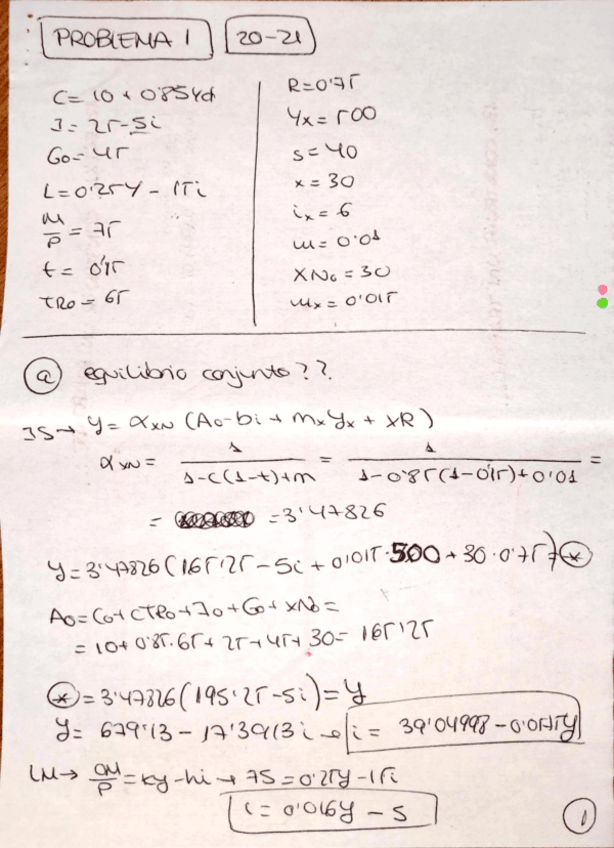 PROBLEMA 1 20-21
C = 10 + 0'85Yd
I = 25-5i
G₀ = 45
L = 0'25Y - 15i
M/P = 75
t = 0'15
TR₀ = 65
R = 0'75
Yx = 500
s = 40
x = 30
ix = 6
m = 0'01
XN₀ = 30
mx = 0'015
ⓐ equilibrio conjunto??
IS → Y = αXN (A₀ - bi + mxYx + xR)
αXN = 1/(1-c(1-t)+m) = 1/(1-0'85(1-0'15)+0'01) =
= 3'47826
Y = 3'47826 (165'25 - 5i + 0'015·500 + 30·0'75) = *
A₀ = C₀ + cTR₀ + I₀ + G₀ + XN₀ =
= 10 + 0'85·65 + 25 + 45 + 30 = 165'25
* = 3'47826 (195'25 - 5i) = Y
Y = 679'13 - 17'3913 i → i = 39'04998 - 0'0575Y
LM → M/P = ky - hi → 75 = 0'25y - 15i
i = 0'016y - 5
1